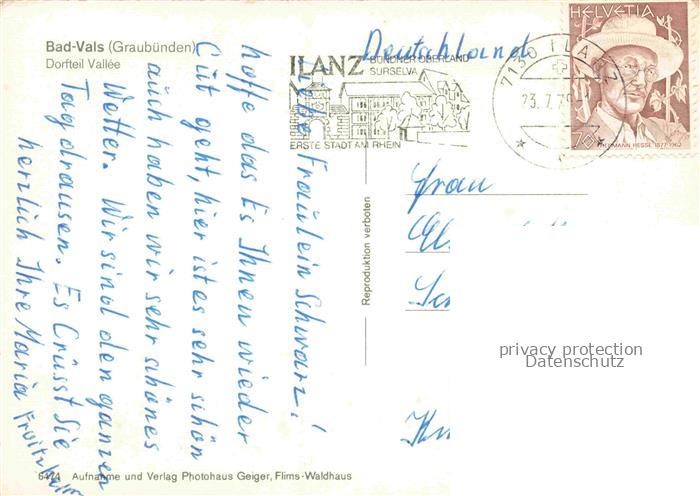 Bad-Vals (Graubünden)
Dorfteil Vallée
Liebe Fräulein Schwarz!
hoffe das Es Ihnen wieder
Gut geht, hier ist es sehr schön
auch haben wir sehr schönes
Wetter. Wir sind den ganzen
Tag drausen. Es Grüsst Sie
herzlich Ihre Maria
6474 Aufnahme und Verlag Photohaus Geiger, Flims-Waldhaus
Reproduktion verboten
Deutschland
ILANZ
BÜNDNER OBERLAND
SURSELVA
ERSTE STADT AM RHEIN
7130 ILANZ
23.7.79
HELVETIA
70
HERMANN HESSE 1877-1962
Frau
privacy protection
Datenschutz